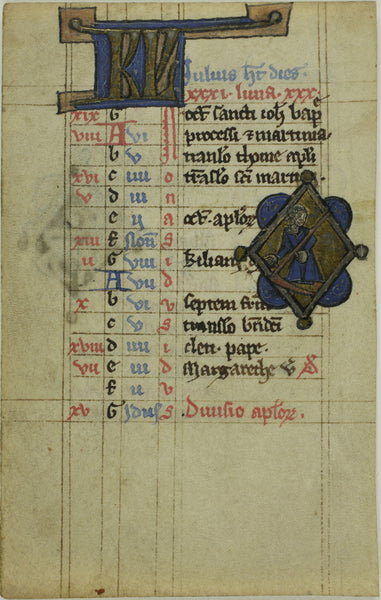 KL
Iulius ht dies
xxxi. luna. xxx.
xix G N oct sancti ioh bap
viii A vi processi & martinia
b v translo thome apli
xvi c iiii o traslo sci martini
v d iii n
e ii a oct aplor
xiii f Non s
ii G viii i kiliani
A vii d
x b vi u septem frm
c v s translo bndicti
xviii d iiii i cleti pape
vii e iii d Margarethe v
f ii u
xv G Idus s Diuisio aplor